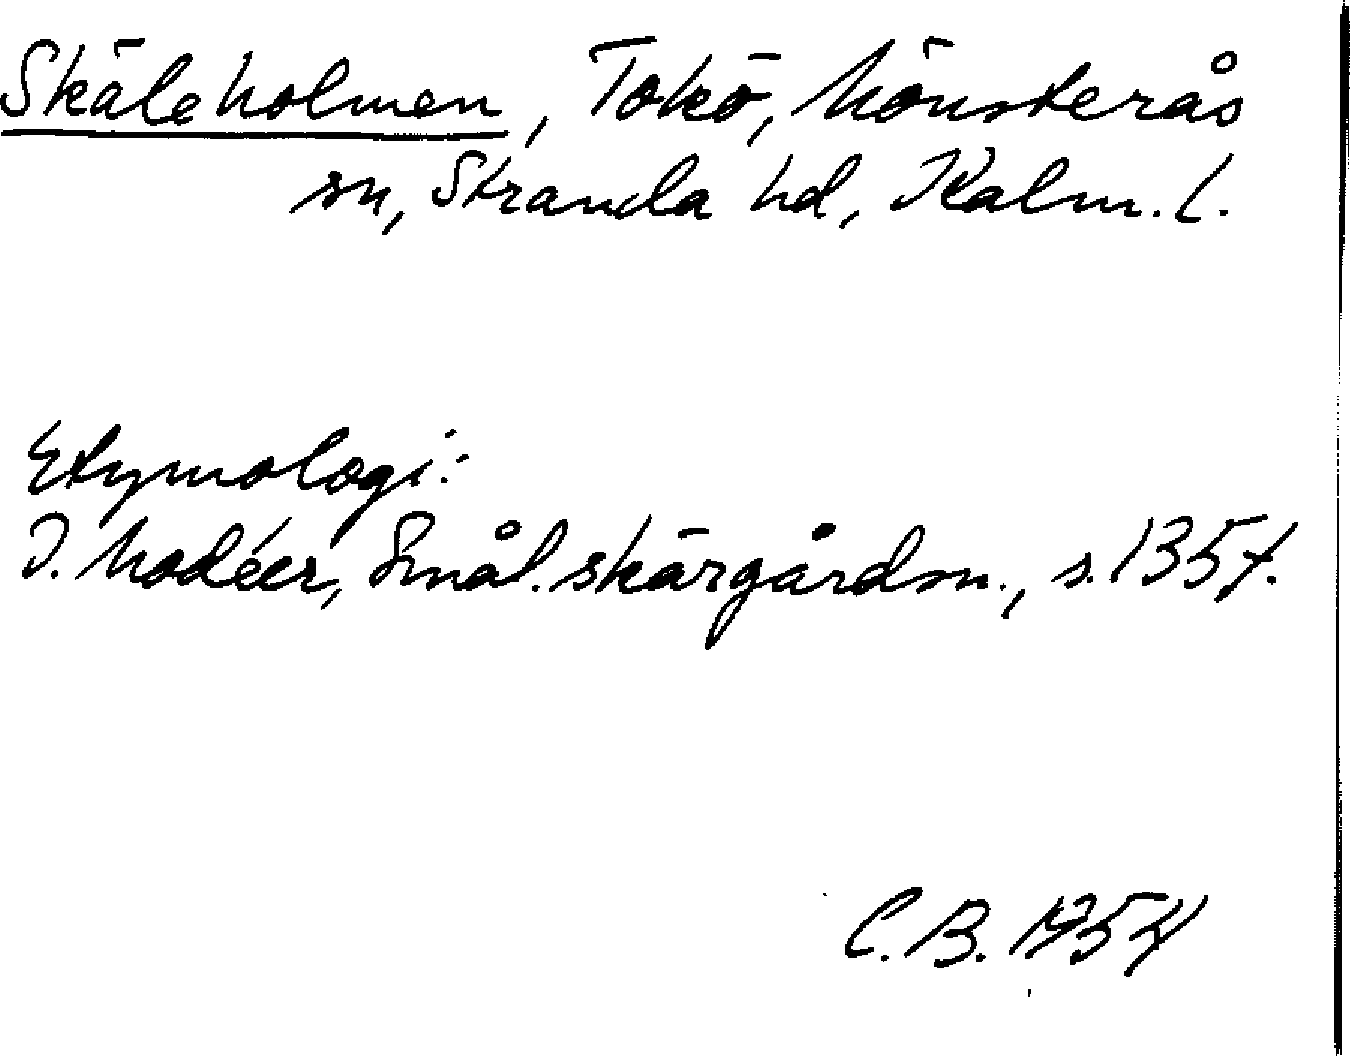 Skäleholmen, Tokö, Mönsterås
sn, Stranda hd, Kalm. l.
Etymologi:
I. Modéer, Smål. skärgårdsn., s. 135 f.
C. B. 1954